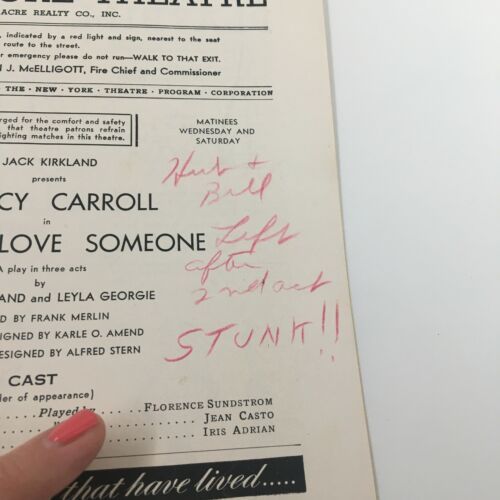 THEATRE
ACRE REALTY CO., INC.
, indicated by a red light and sign, nearest to the seat
route to the street.
er emergency please do not run—WALK TO THAT EXIT.
J. McELLIGOTT, Fire Chief and Commissioner
THE · NEW · YORK · THEATRE · PROGRAM · CORPORATION
rged for the comfort and safety
that theatre patrons refrain
ighting matches in this theatre.
MATINEES
WEDNESDAY AND
SATURDAY
JACK KIRKLAND
presents
CY CARROLL
in
LOVE SOMEONE
A play in three acts
by
AND and LEYLA GEORGIE
D BY FRANK MERLIN
SIGNED BY KARLE O. AMEND
ESIGNED BY ALFRED STERN
+
Bill
Left
after
2nd act
STUNK!!
CAST
er of appearance)
Played by ..... FLORENCE SUNDSTROM
JEAN CASTO
IRIS ADRIAN
that have lived.....